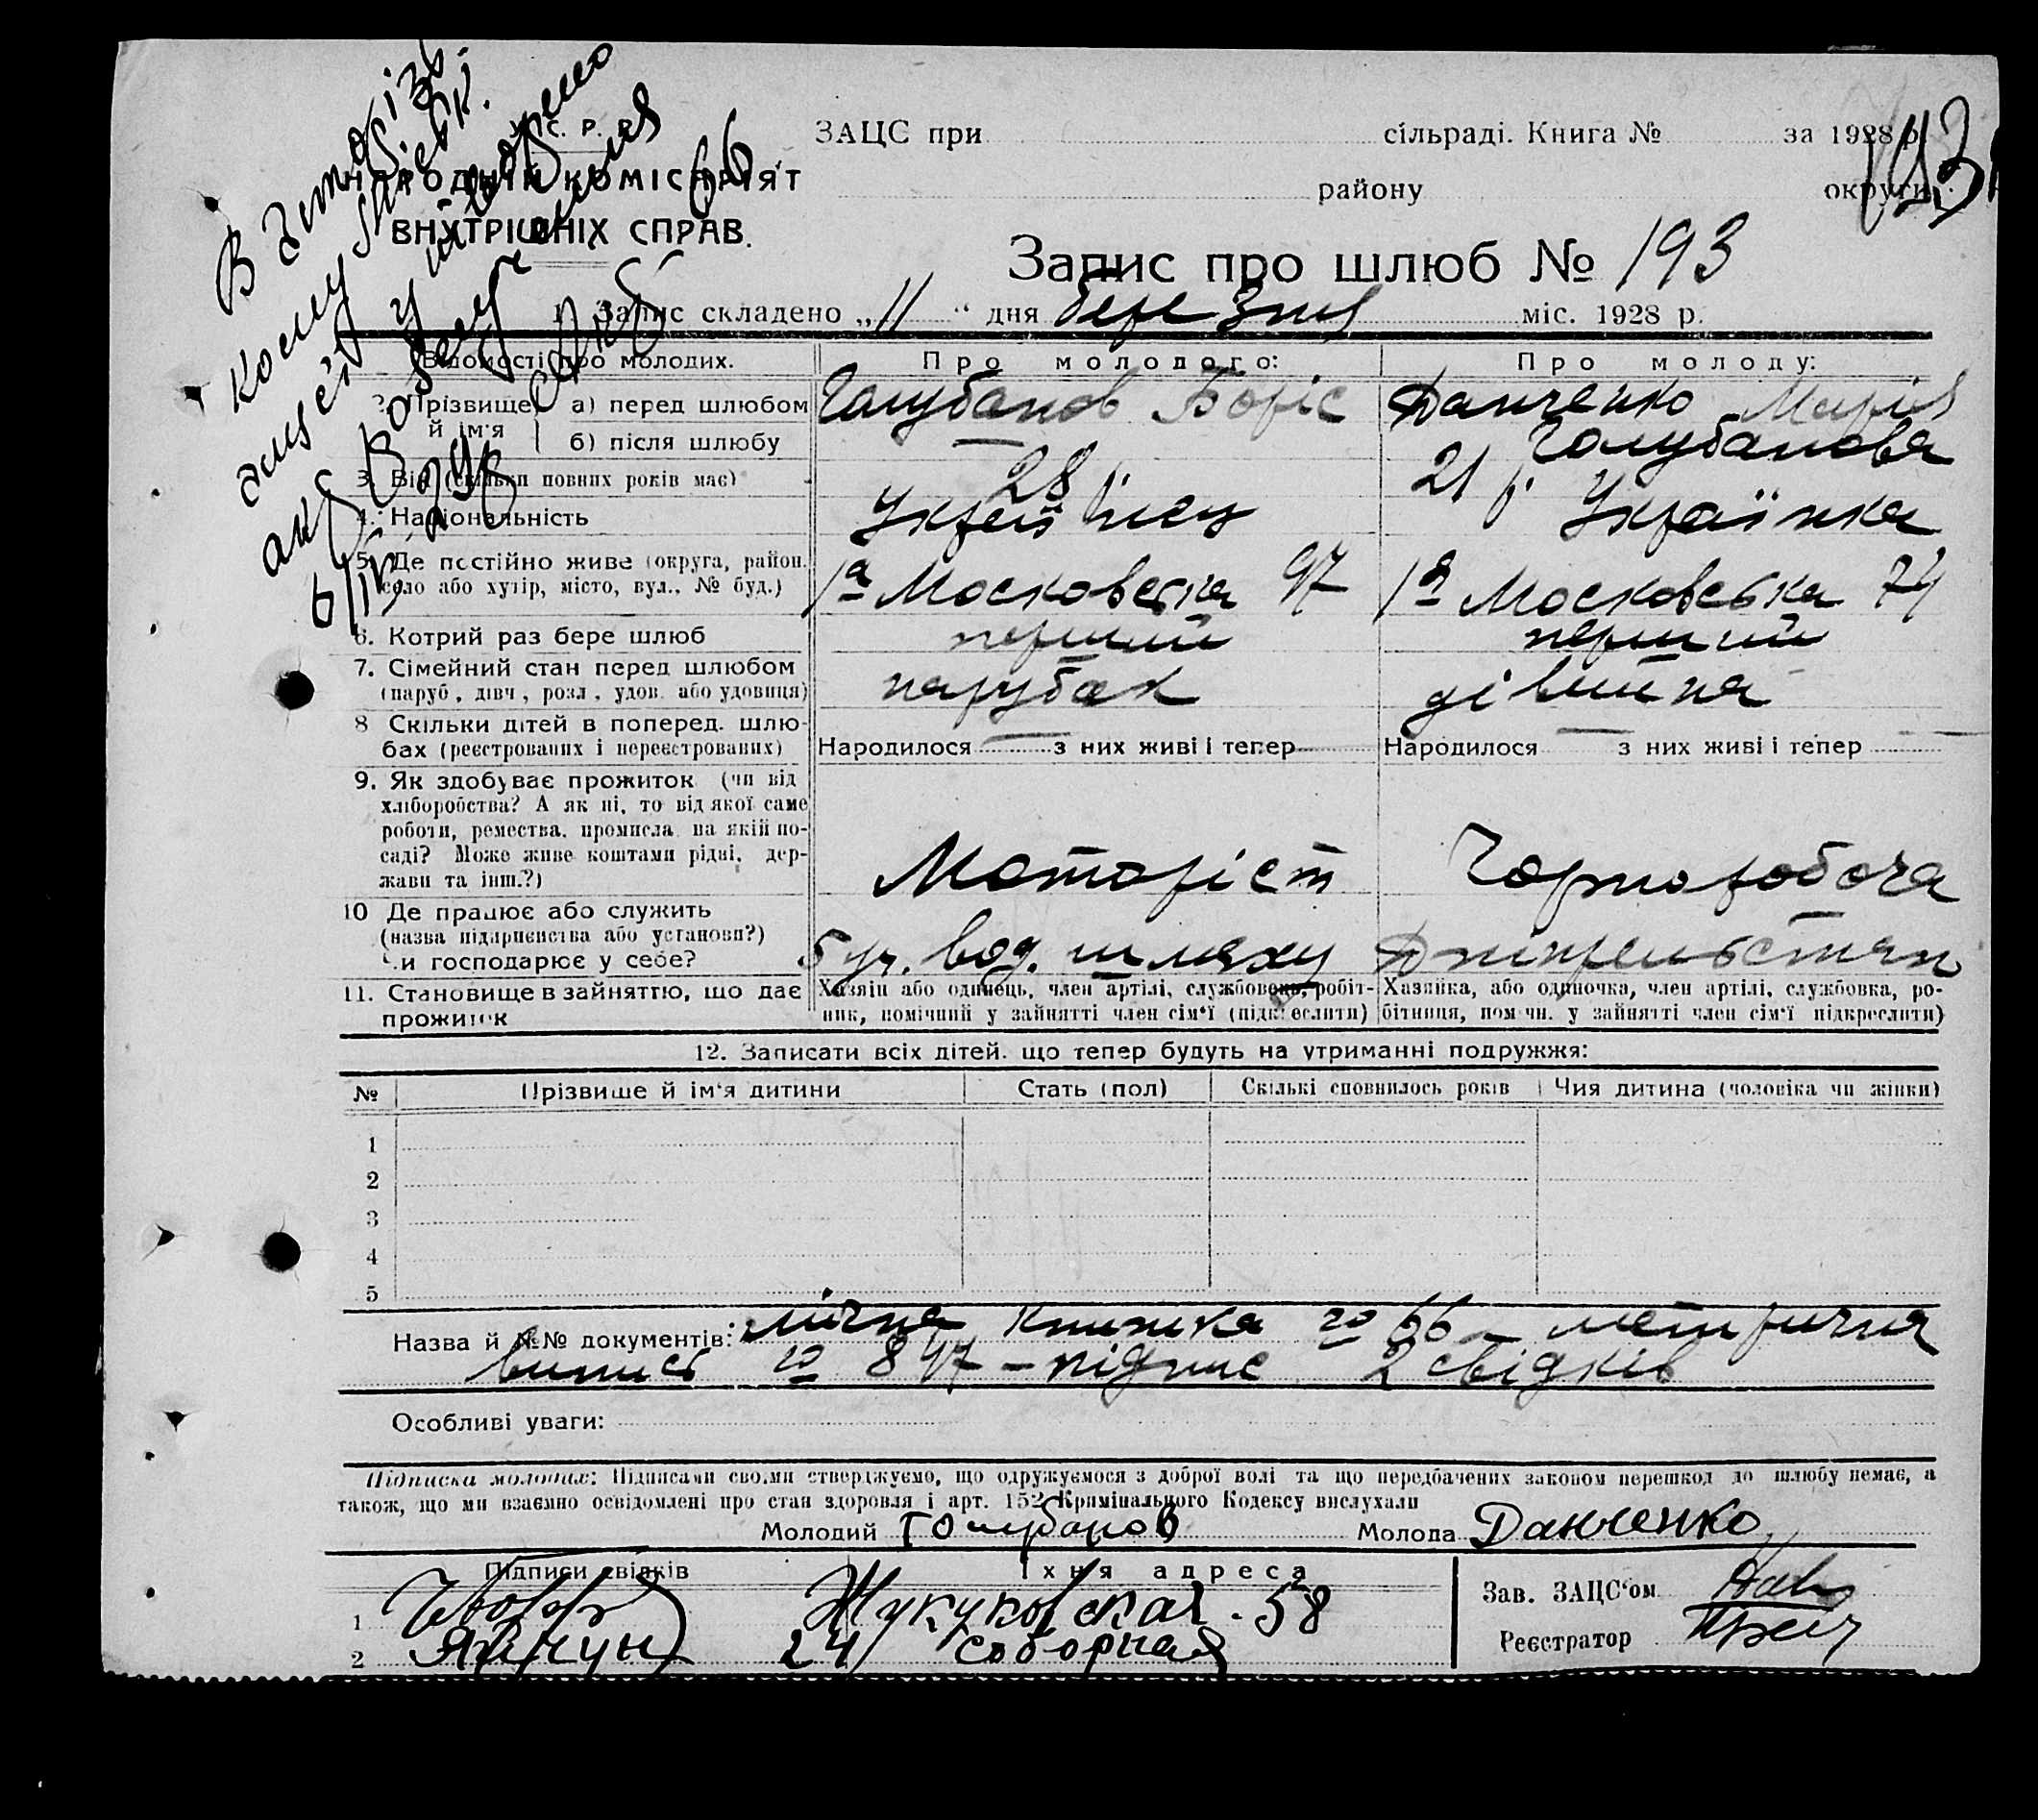 У. С. Р. Р.
НАРОДНІЙ КОМІСАРІЯТ
ВНУТРІШНІХ СПРАВ.
ЗАЦС при сільраді. Книга № за 1928 р.
району округи
193
Запис про шлюб № 193
1. Запис складено „11" дня березня міс. 1928 р.
Відомості про молодих. Про молодого: Про молоду:
2. Прізвище й ім'я а) перед шлюбом Голубанов Боріс Данченко Марія
б) після шлюбу Голубанова
3. Вік (скільки повних років має) 28 21 р.
4. Національність Українец Українка
5. Де постійно живе (округа, район, село або хутір, місто, вул., № буд.) 1а Московська 97 1а Московська 74
6. Котрий раз бере шлюб перший перший
7. Сімейний стан перед шлюбом парубок дівчина
(паруб., дівч., розл., удов. або удовиця)
8 Скільки дітей в поперед. шлюбах (реєстрованих і нереєстрованих) Народилося з них живі і тепер Народилося з них живі і тепер
9. Як здобуває прожиток (чи від
хліборобства? А як ні, то від якої саме
роботи, ремества, промисла, на якій по-
саді? Може живе коштами рідні, дер-
жави та інш.?) Моторіст Чорноробоча
10 Де працює або служить
(назва підприємства або установи?)
Чи господарює у себе? 5 уч. вод. шляху
11. Становище в зайняттю, що дає прожиток
Хазяїн або одинець, член артілі, службовець, робіт-
ник, помічний у зайнятті член сім'ї (підкреслити)
Хазяйка, або одиночка, член артілі, службовка, ро-
бітниця, пом чн. у зайнятті член сім'ї підкреслити)
12. Записати всіх дітей, що тепер будуть на утриманні подружжя:
№ Прізвище й ім'я дитини Стать (пол) Скількі сповнилось років Чия дитина (чоловіка чи жінки)
1
2
3
4
5
Назва й №№ документів: книжка № 66 – метрична
випись № 847 – підпис 2 свідків
Особливі уваги:
Підписка молодих: Підписами своїми стверджуємо, що одружуємося з доброї волі та що передбачених законом перешкод до шлюбу немає, а
також, що ми взаємно освідомлені про стан здоровля і арт. 152 Кримінального Кодексу вислухали
Молодий Голубанов Молода Данченко
Підписи свідків Їхня адреса
1 Жуковская 58
2 24 Соборная
Зав. ЗАЦС'ом
Реєстратор